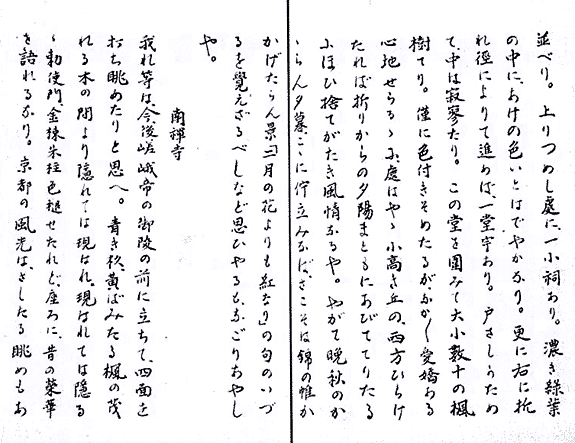 並べり。上りつめし處に、一小祠あり。濃き緑葉
の中に、あけの色いとはでやかなり。更に右に折
れ徑によりて進めば、一堂宇あり。戸さしうため
て、中は寂寥たり。この堂を圍みて大小数十の楓
樹てり。僅に色付きそめたるが、なか〳〵愛嬌ある
心地せらるゝに、庭はやゝ小高き丘の、西方ひらけ
たれば折りからの夕陽まともにあびててりたる
にほひ捨てがたき風情なるや。やがて晩秋のか
ゝらん夕暮こゝに佇立みなば、さこそは錦の帷か
かげたらん景、「二月の花よりも紅なり」の句のいづ
るを覺えざるべしなど思ひやるも、なごりあやし
や。
南禪寺
我れ等は、今後嵯峨帝の御陵の前に立ちて、四面を
打ち眺めたりと思へ。青き杉、黄ばみたる楓の茂
れる木の間より隠れては現はれ、現はれては隠る
ゝ勅使門、金棟朱柱色褪せたれど、座ろに、昔の榮華
を語れるなり。京都の風光は、さしたる眺めもあ